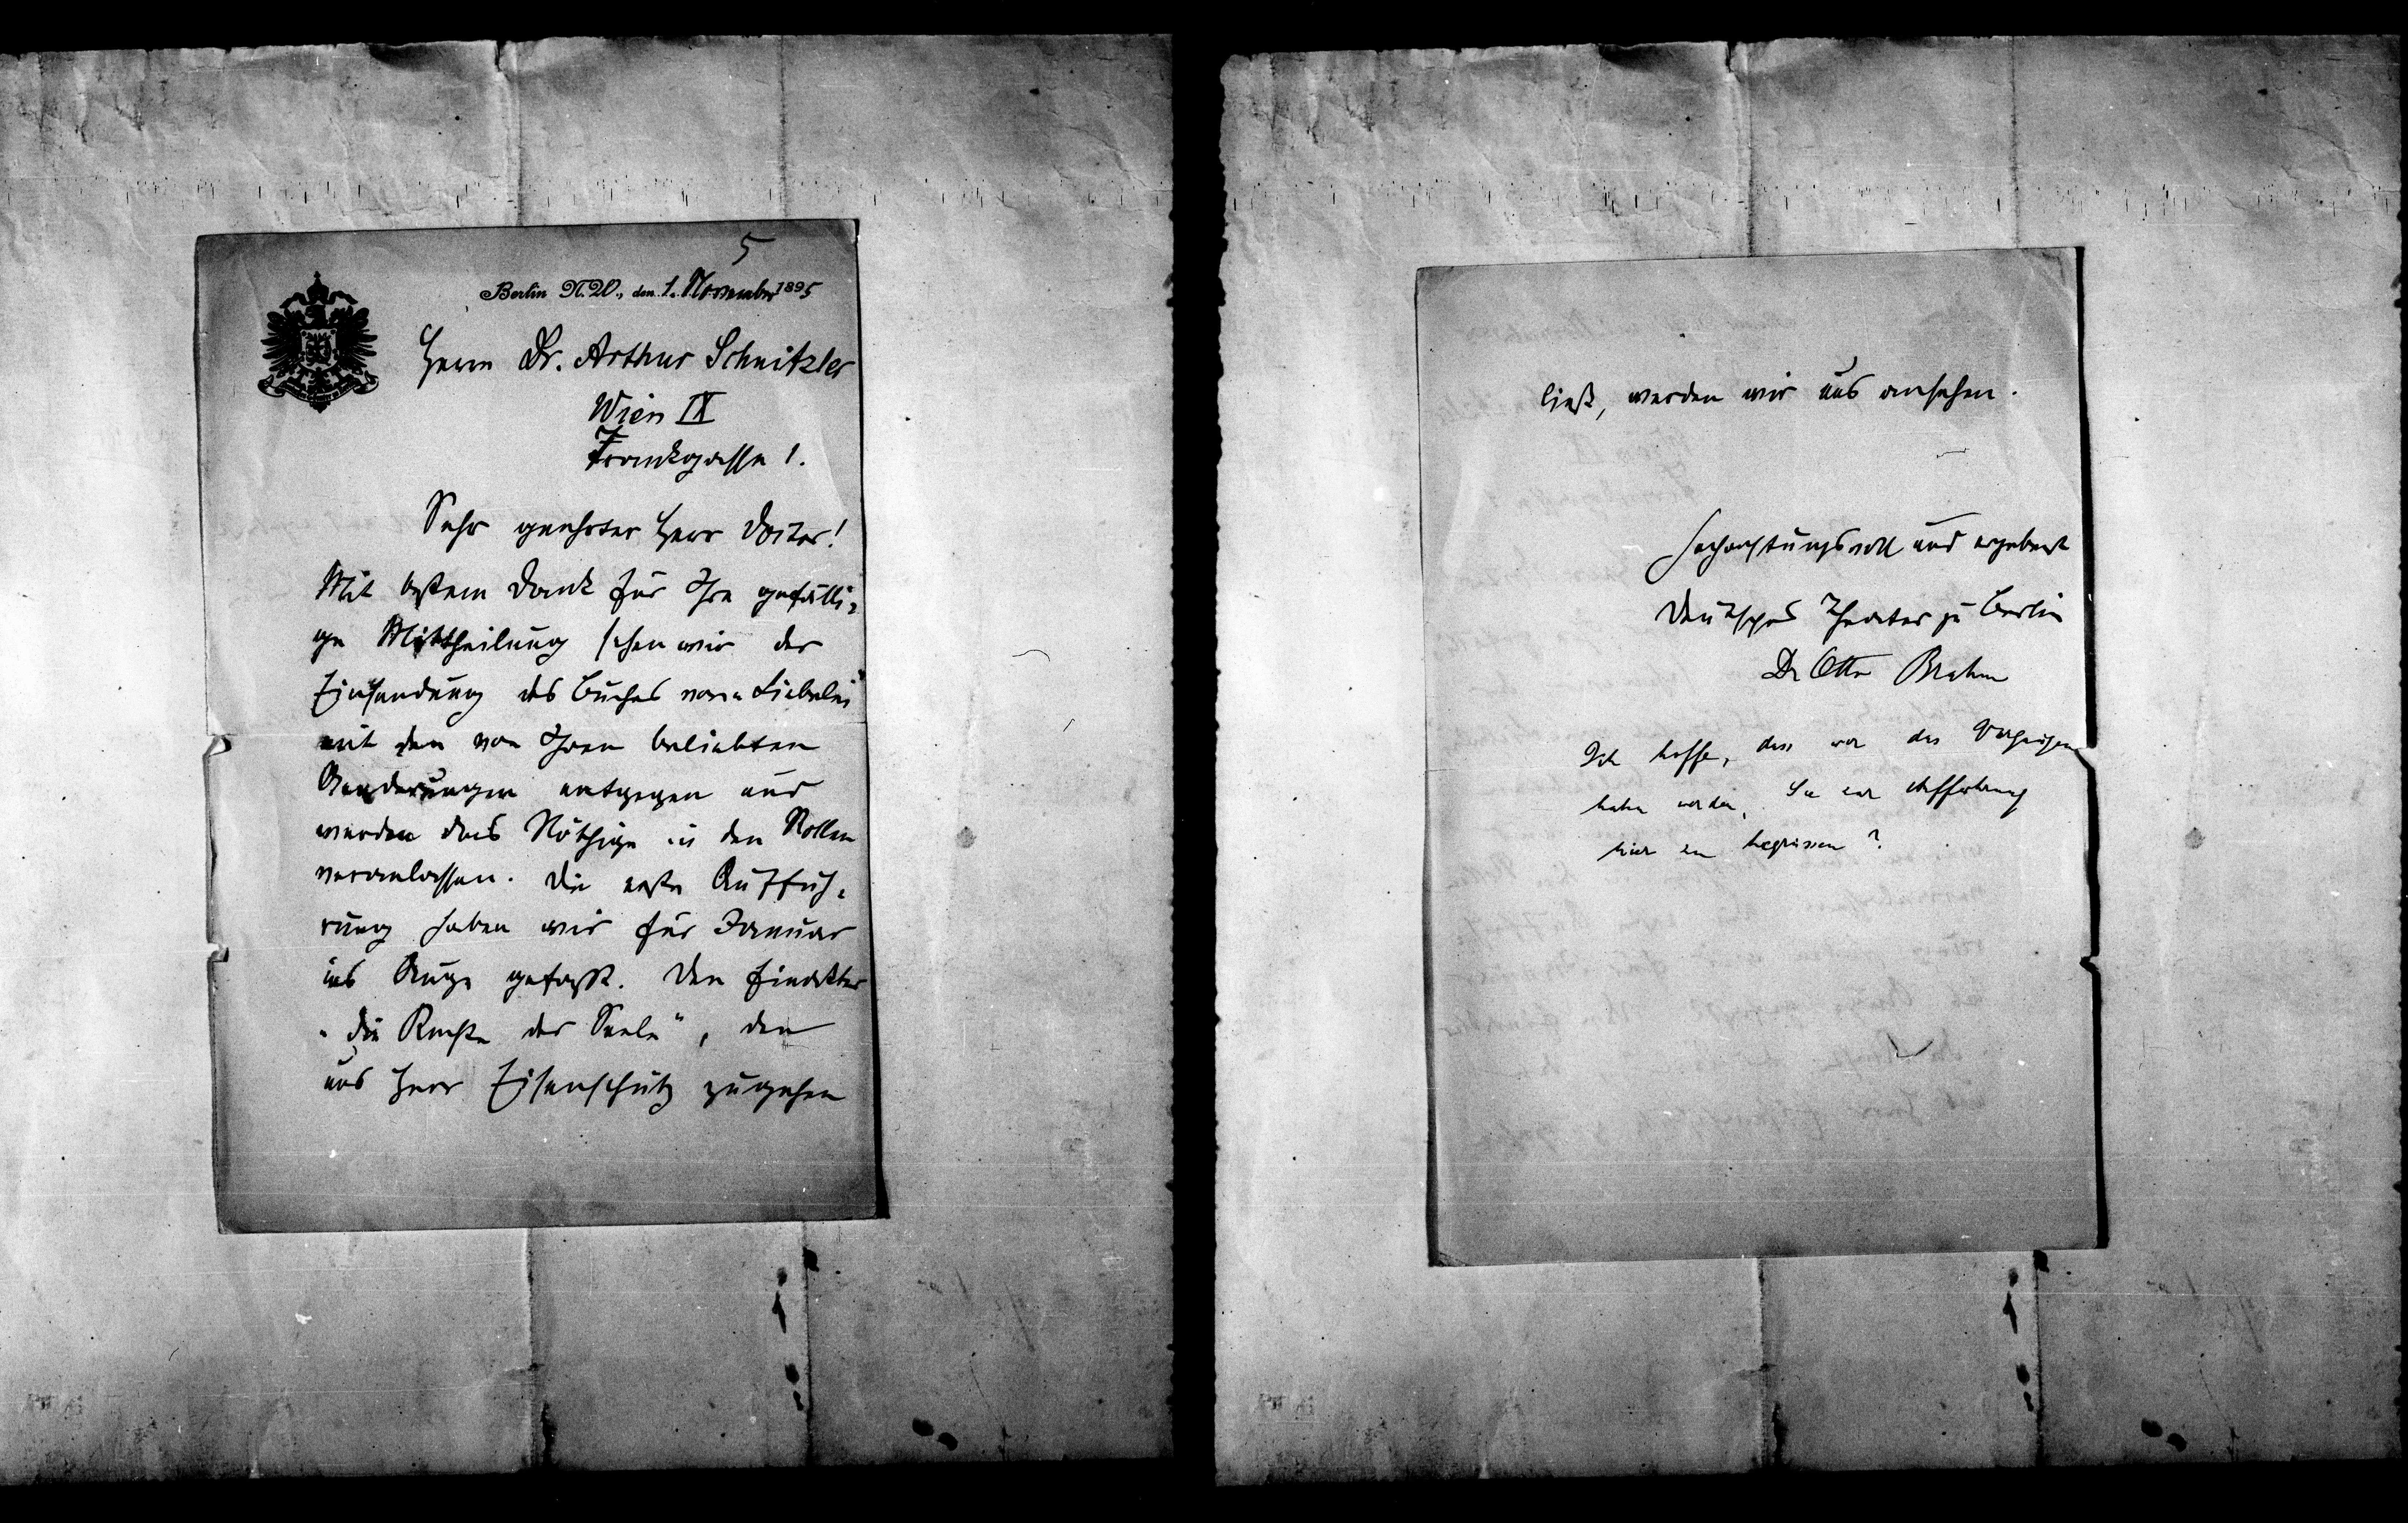 5
Berlin N.W., den 1. November 1895
Herrn Dr. Arthur Schnitzler
Wien IX
Frankgasse 1.
Sehr geehrter Herr Doctor!
Mit bestem Dank für Ihre gefälli-
ge Mittheilung sehen wir der
Einsendung des Buches von „Liebelei“
mit den von Ihnen beliebten
Aenderungen entgegen und
werden das Nöthige in den Rollen
veranlassen. Die erste Auffüh-
rung haben wir für Januar
ins Auge gefaßt. Den Einakter
„Die Rechte der Seele“, den
uns Herr Eisenschütz zugehen
ließ, werden wir uns ansehen.
Hochachtungsvoll und ergebenst
Deutsches Theater zu Berlin
Dr Otto Brahm
Ich hoffe, dass wir das Vergnügen
haben werden, Sie zur Aufführung
hier zu begrüssen?